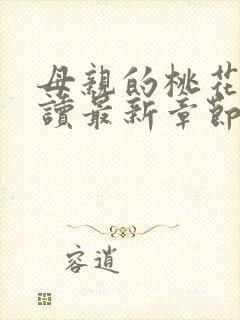 母親的桃花
讀最新章節
容逍